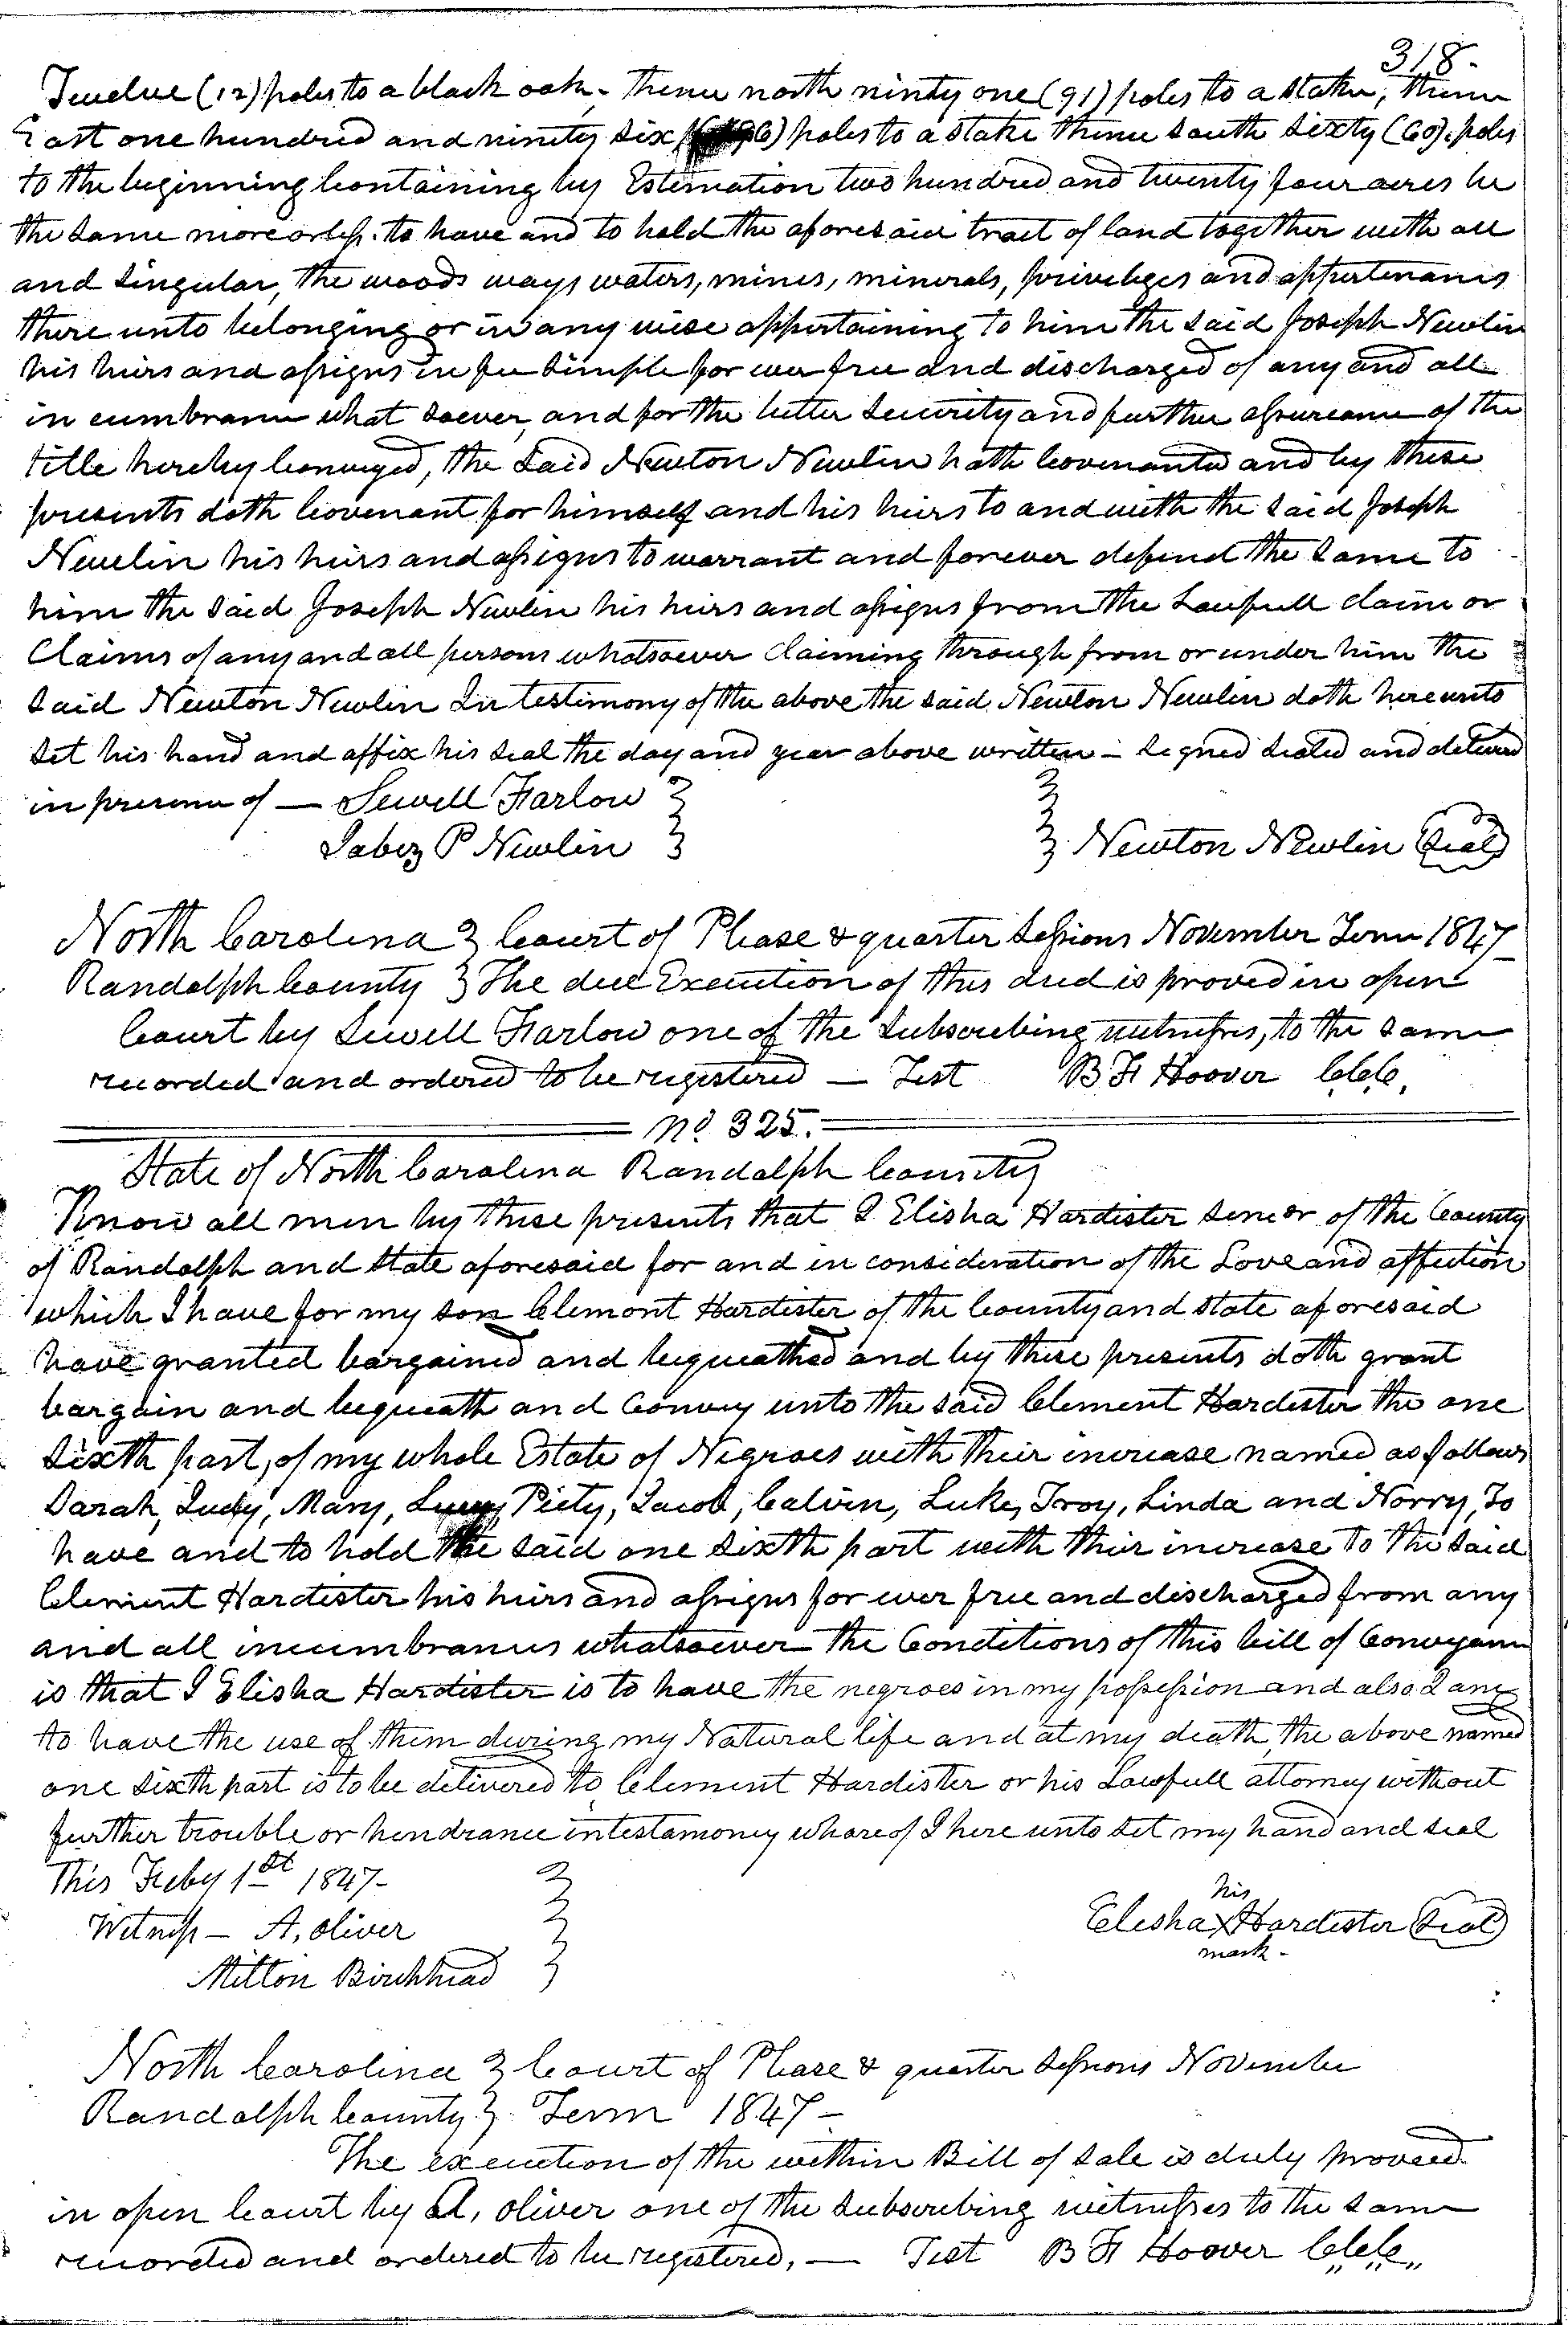 318.
Twelve (12) poles to a black oak - thence north ninty one (91) poles to a stake, thence
East one hundred and ninety six (196) poles to a stake thence south sixty (60). poles
to the beginning Containing by Estemation two hundred and twenty four acres be
the same more or less. to have and to hold the aforesaid tract of land together with all
and singular, the woods ways waters, mines, minerals, priveleges and appertenances
there unto belonging or in any wise appertaining to him the said Joseph Newlin
his heirs and assigns in fee simple for ever free and discharged of any and all
in cumbrance what soever, and for the better security and further assureance of the
title hereby Conveyed, the said Newton Newlin hath Covenanted and by these
presents doth Covenant for himself and his heirs to and with the said Joseph
Newlin his heirs and assigns to warrant and forever defend the same to
him the said Joseph Newlin his heirs and assigns from the Lawfull claim or
Claims of any and all persons whatsoever Claiming through from or under him the
said Newton Newlin In testimony of the above the said Newton Newlin doth hereunto
set his hand and affix his seal the day and year above written - signed sealed and delivered
in presence of — Sewell Farlow
Jabez P Newlin Newton Newlin Seal
North Carolina Court of Please & quarter sessions November Term 1847
Randolph County The due Execution of this deed is proved in open
Court by Sewell Farlow one of the subscribing witnesses, to the same
recorded and ordered to be registered — Test B F Hoover C.C.C.
No. 325.
State of North Carolina Randolph County
Know all men by these presents that I Elisha Hardister senior of the County
of Randolph and state aforesaid for and in consideration of the Love and affection
which I have for my son Clemont Hardister of the County and state aforesaid
have granted bargained and bequeathed and by these presents doth grant
bargain and bequeath and Convey unto the said Clement Hardister the one
sixth part, of my whole Estate of Negroes with their increase named as follows
Sarah, Judy, Mary, Lucy, Piety, Jacob, Calvin, Luke, Troy, Linda and Norry, To
have and to hold the said one sixth part with their increase to the said
Clement Hardister his heirs and assigns for ever free and discharged from any
and all incumbrances whatsoever the Conditions of this bill of Conveyance
is that I Elisha Hardister is to have the negroes in my possession and also I am
to have the use of them during my Natural life and at my death, the above named
one sixth part is to be delivered to Clement Hardister or his Lawfull attorney without
further trouble or hendrance intestamoney whareof I here unto set my hand and seal
This Feeby 1st 1847-
his
Witness - A, Oliver Elisha X Hardister Seal
mark -
Milton Birchhead
North Carolina Court of Please & quarter sessions November
Randolph County Term 1847 -
The execution of the within Bill of sale is duly proved
in open Court by A, Oliver one of the subscribing witnesses to the same
recorded and ordered to be registered, — Test B F Hoover C.C.C.